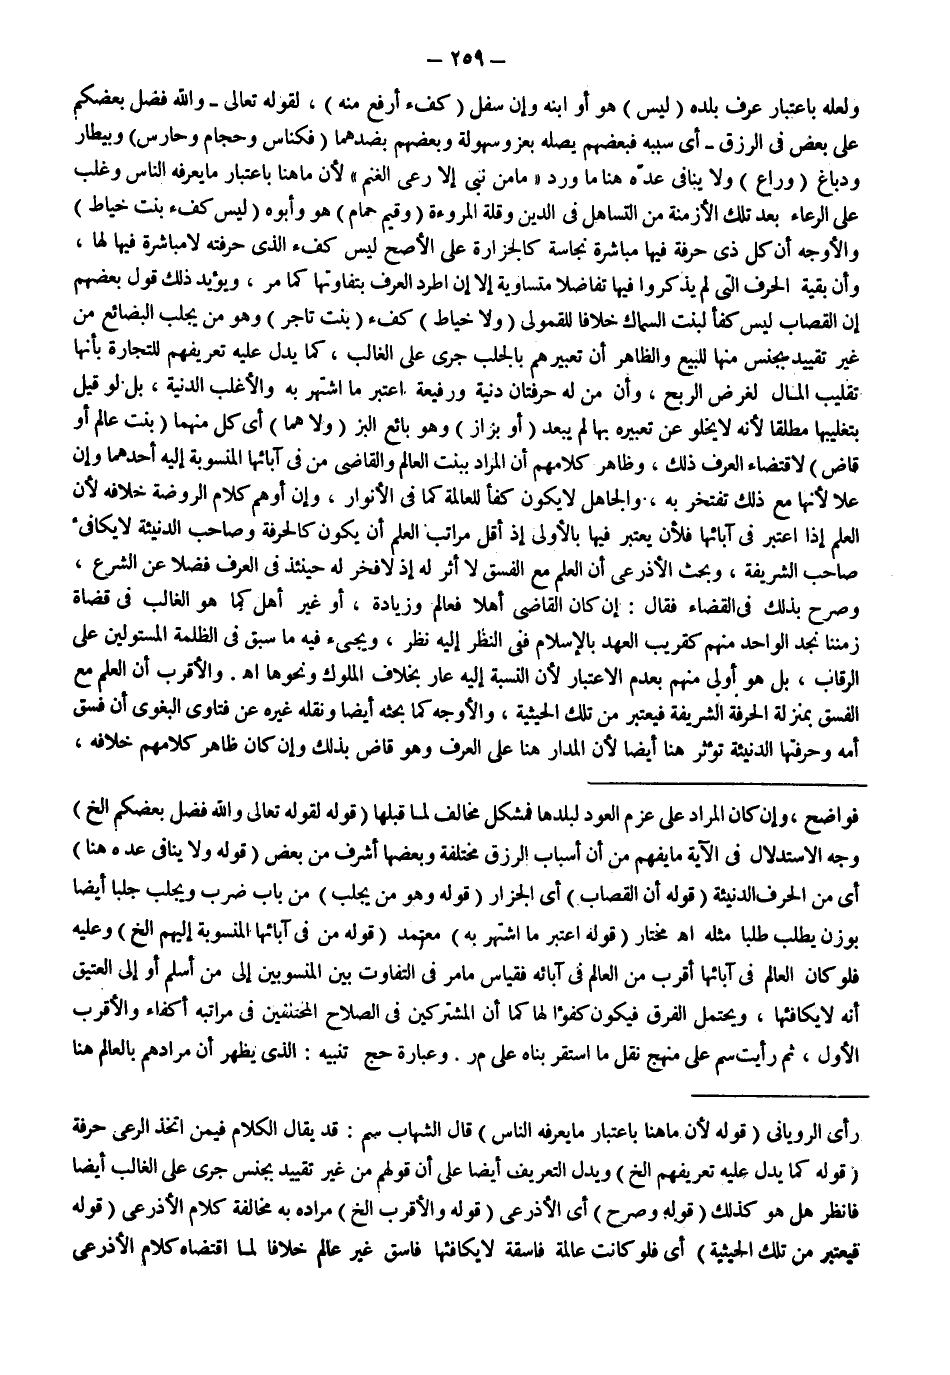 — ٢٥٩ —
ولعله باعتبار عرف بلده ( ليس ) هو أو ابنه وإن سفل ( كفء أرفع منه ) ، لقوله تعالى ـ والله فضل بعضكم
على بعض فى الرزق ـ أى سببه فبعضهم يصله بعز وسهولة وبعضهم بضدهما ( فكناس وحجام وحارس) وبيطار
ودباغ ( وراع ) ولا ينافى عدّه هنا ما ورد « مامن نبى إلا رعى الغنم » لأن ماهنا باعتبار مايعرفه الناس وغلب
على الرعاء بعد تلك الأزمنة من التساهل فى الدين وقلة المروءة ( وقيم حمام ) هو وأبوه ( ليس كفء بنت خياط )
والأوجه أن كل ذى حرفة فيها مباشرة نجاسة كالجزارة على الأصح ليس كفء الذى حرفته لامباشرة فيها لها ،
وأن بقية الحرف التى لم يذكروا فيها تفاضلا متساوية إلا إن اطرد العرف بتفاوتها كما مر ، ويؤيد ذلك قول بعضهم
إن القصاب ليس كفأ لبنت السماك خلافا للقمولى ( ولا خياط ) كفء ( بنت تاجر ) وهو من يجلب البضائع من
غير تقييد بجنس منها للبيع والظاهر أن تعبيرهم بالجلب جرى على الغالب ، كما يدل عليه تعريفهم للتجارة بأنها
تقليب المال لغرض الربح ، وأن من له حرفتان دنية ورفيعة اعتبر ما اشتهر به والأغلب الدنية ، بل لو قيل
بتغليبها مطلقا لأنه لايخلو عن تعبيره بها لم يبعد ( أو بزاز ) وهو بائع البز ( ولا هما ) أى كل منهما ( بنت عالم أو
قاض ) لاقتضاء العرف ذلك ، وظاهر كلامهم أن المراد ببنت العالم والقاضى من فى آبائها المنسوبة إليه أحدهما وإن
علا لأنها مع ذلك تفتخر به ، والجاهل لايكون كفأ للعالمة كما فى الأنوار ، وإن أوهم كلام الروضة خلافه لأن
العلم إذا اعتبر فى آبائها فلأن يعتبر فيها بالأولى إذ أقل مراتب العلم أن يكون كالحرفة وصاحب الدنيئة لايكافىء
صاحب الشريفة ، وبحث الأذرعى أن العلم مع الفسق لا أثر له إذ لافخر له حينئذ فى العرف فضلا عن الشرع ،
وصرح بذلك فى القضاء فقال : إن كان القاضى أهلا فعالم وزيادة ، أو غير أهل كما هو الغالب فى قضاة
زمننا نجد الواحد منهم كقريب العهد بالإسلام ففى النظر إليه نظر ، ويجىء فيه ما سبق فى الظلمة المستولين على
الرقاب ، بل هو أولى منهم بعدم الاعتبار لأن النسبة إليه عار بخلاف الملوك ونحوها اه . والأقرب أن العلم مع
الفسق بمنزلة الحرفة الشريفة فيعتبر من تلك الحيثية ، والأوجه كما بحثه أيضا ونقله غيره عن فتاوى البغوى أن فسق
أمه وحرفتها الدنيئة تؤثر هنا أيضا لأن المدار هنا على العرف وهو قاض بذلك وإن كان ظاهر كلامهم خلافه ،
فواضح ، وإن كان المراد على عزم العود لبلدها فمشكل مخالف لما قبلها ( قوله لقوله تعالى والله فضل بعضكم الخ )
وجه الاستدلال فى الآية مايفهم من أن أسباب الرزق مختلفة وبعضها أشرف من بعض ( قوله ولا ينافى عده هنا )
أى من الحرف الدنيئة ( قوله أن القصاب ) أى الجزار ( قوله وهو من يجلب ) من باب ضرب ويجلب جلبا أيضا
بوزن يطلب طلبا مثله اه مختار ( قوله اعتبر ما اشتهر به ) معتمد ( قوله من فى آبائها المنسوبة إليهم الخ ) وعليه
فلو كان العالم فى آبائها أقرب من العالم فى آبائه فقياس مامر فى التفاوت بين المنسوبين إلى من أسلم أو إلى العتيق
أنه لايكافئها ، ويحتمل الفرق فيكون كفؤا لها كما أن المشتركين فى الصلاح المختلفين فى مراتبه أكفاء والأقرب
الأول ، ثم رأيت سم على منهج نقل ما استقر بناه على مر . وعبارة حج تنبيه : الذى يظهر أن مرادهم بالعالم هنا
رأى الرويانى ( قوله لأن ماهنا باعتبار مايعرفه الناس ) قال الشهاب سم : قد يقال الكلام فيمن اتخذ الرعى حرفة
( قوله كما يدل عليه تعريفهم الخ ) ويدل التعريف أيضا على أن قولهم من غير تقييد بجنس جرى على الغالب أيضا
فانظر هل هو كذلك ( قوله وصرح ) أى الأذرعى ( قوله والأقرب الخ ) مراده به مخالفة كلام الأذرعى ( قوله
فيعتبر من تلك الحيثية ) أى فلو كانت عالمة فاسقة لايكافئها فاسق غير عالم خلافا لما اقتضاه كلام الأذرعى